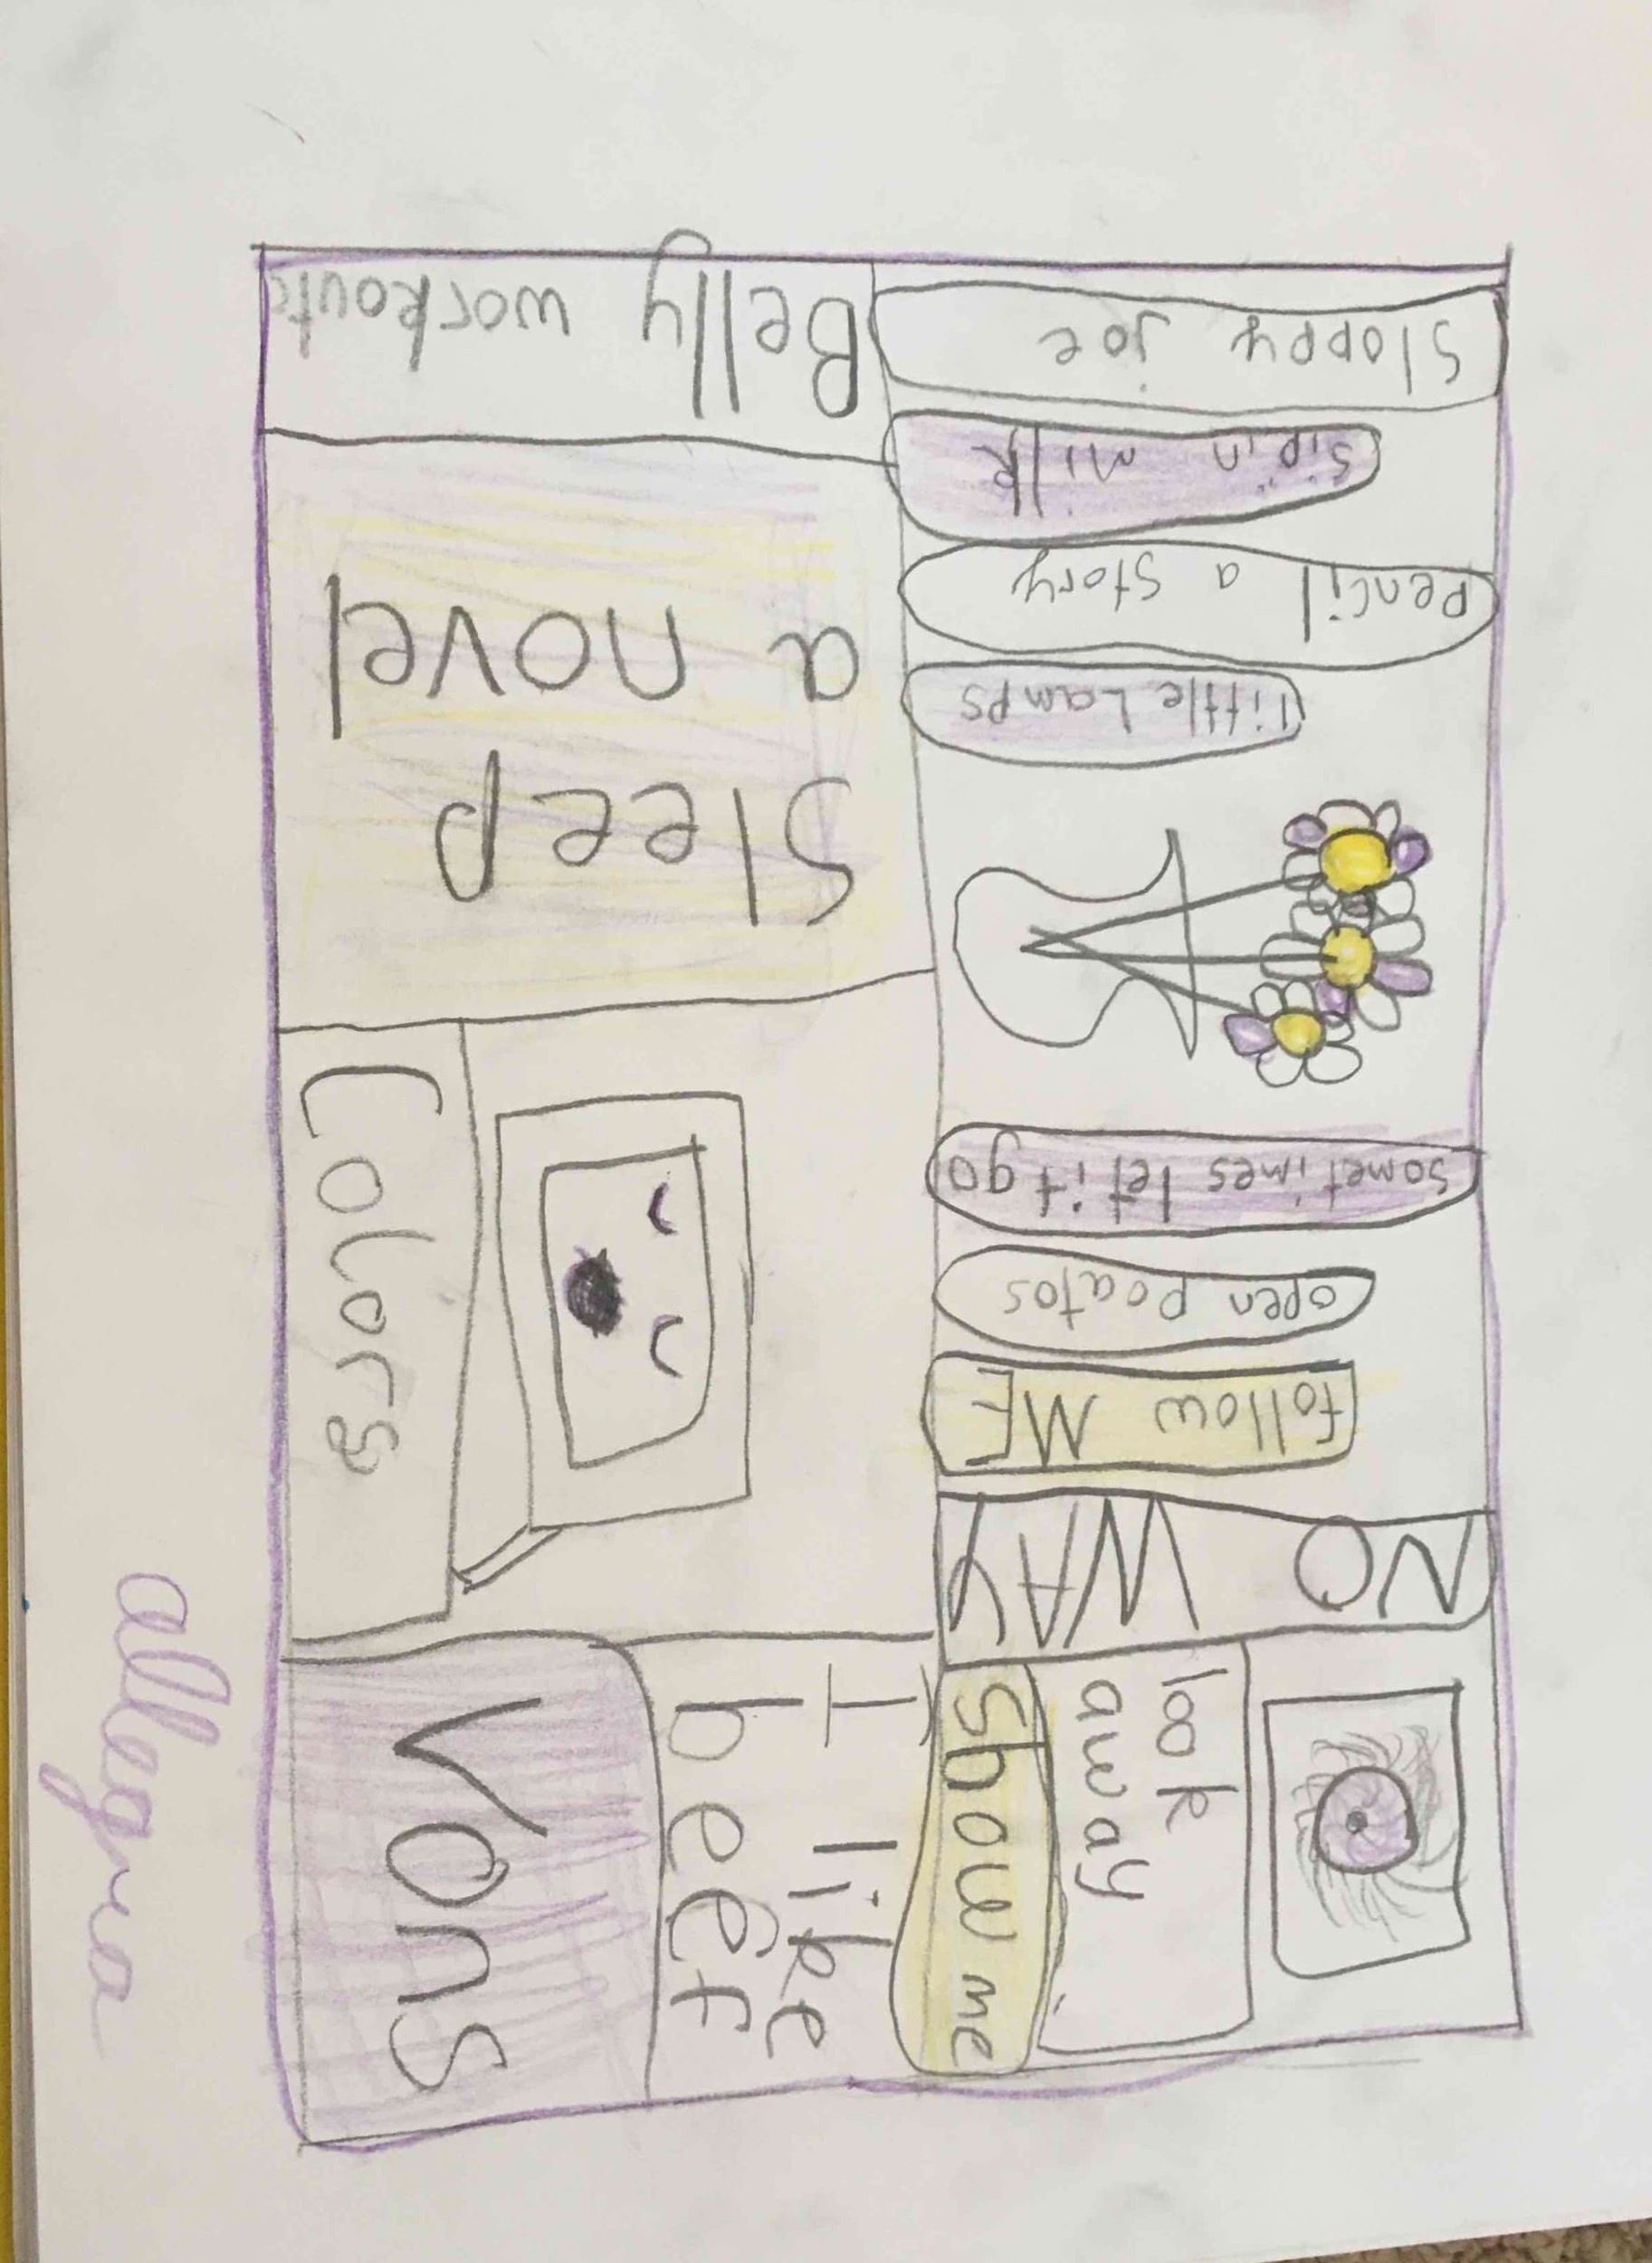 Sloppy joe
sipin milk
pencil a story
little Lamps
sometimes let it go
open poatos
follow ME
NO WAY
look
away
Show me
Belly workouts
Sleep
a novel
Colors
I like
beef
Vons
allegra